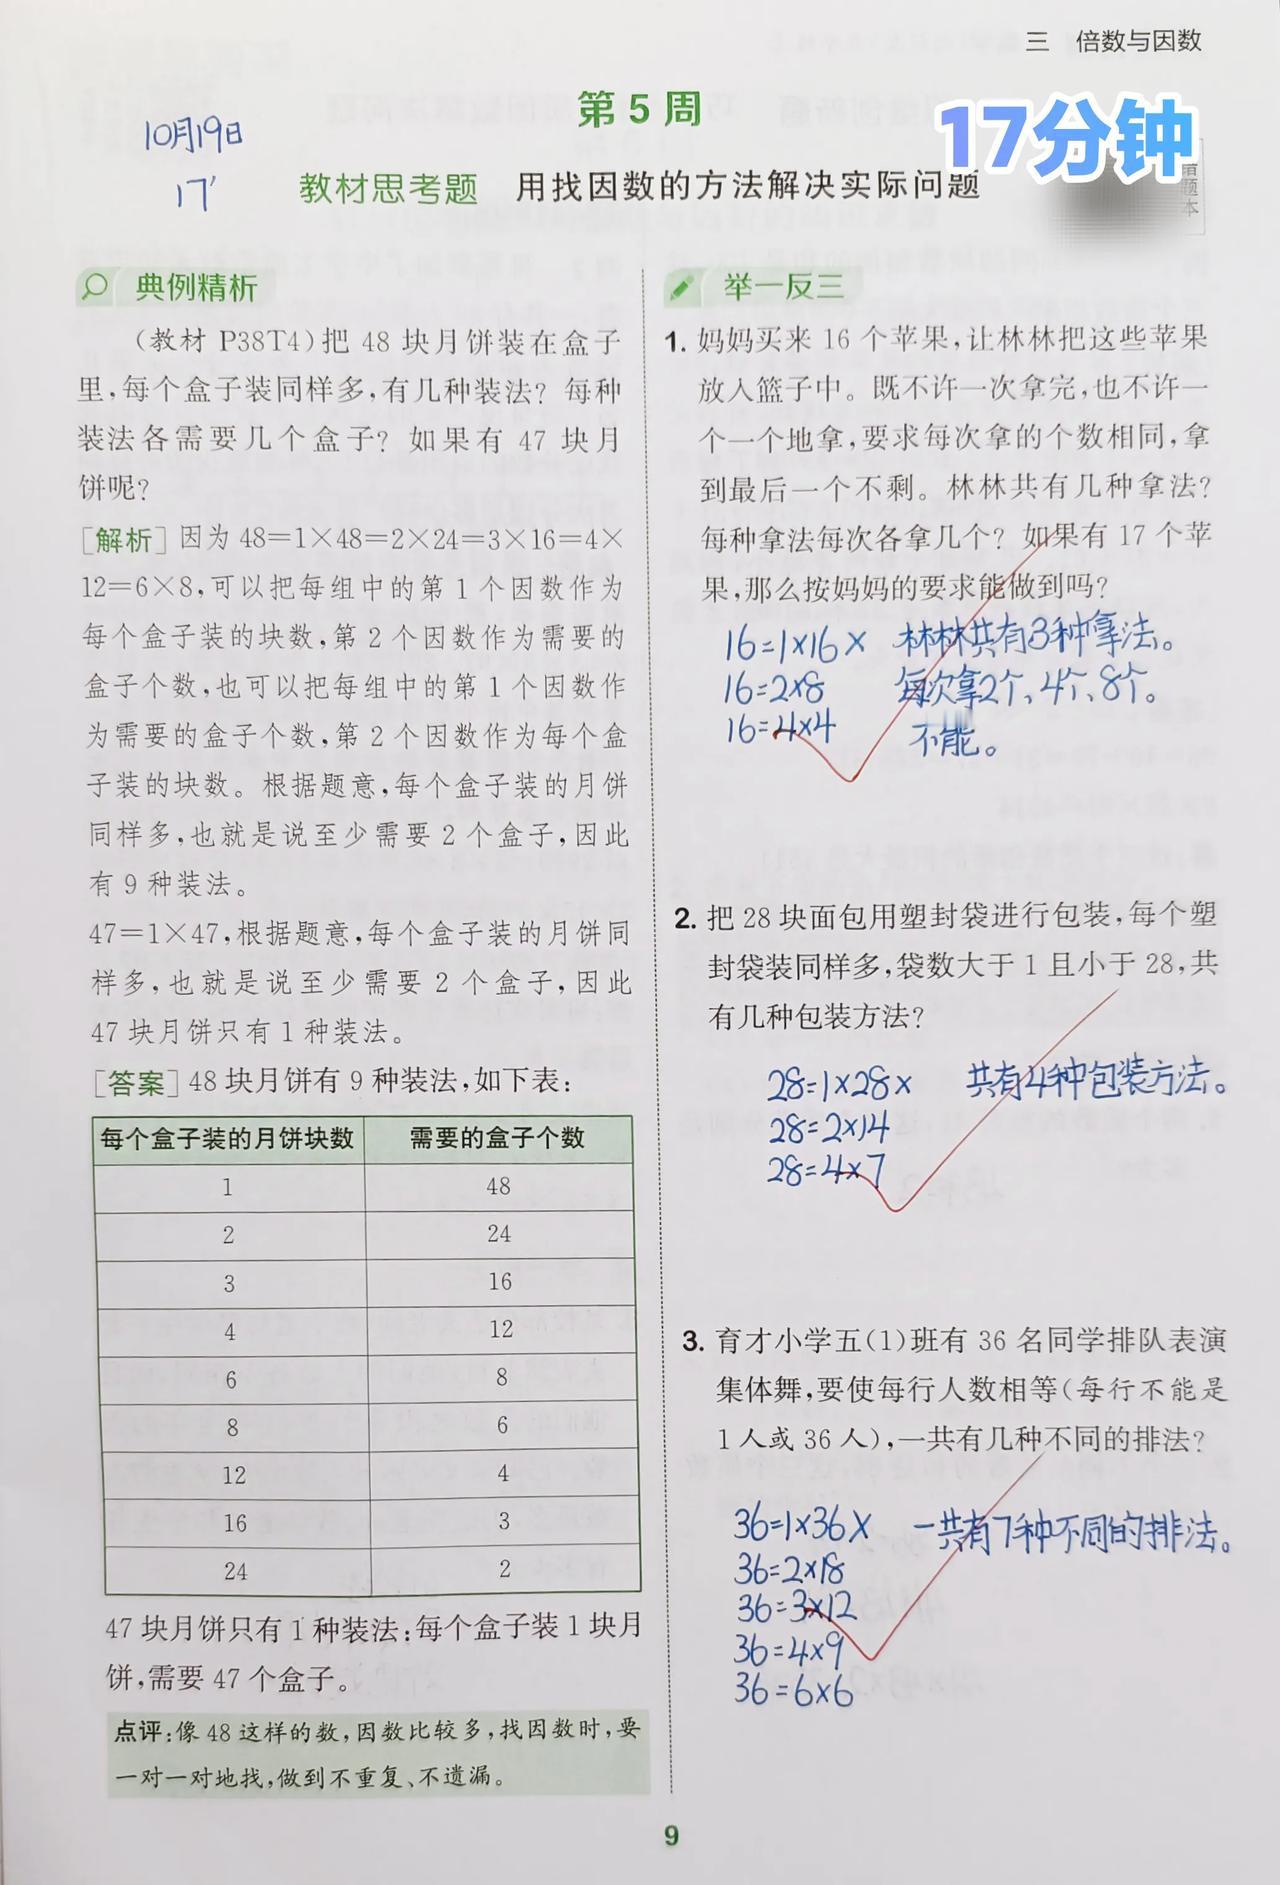 三 倍数与因数
第5周
17分钟
10月19日
17′
教材思考题 用找因数的方法解决实际问题
错题本
典例精析
(教材 P38T4)把 48 块月饼装在盒子
里,每个盒子装同样多,有几种装法？每种
装法各需要几个盒子？如果有 47 块月
饼呢？
[解析]因为 48=1×48=2×24=3×16=4×
12=6×8,可以把每组中的第 1 个因数作为
每个盒子装的块数,第 2 个因数作为需要的
盒子个数,也可以把每组中的第 1 个因数作
为需要的盒子个数,第 2 个因数作为每个盒
子装的块数。根据题意,每个盒子装的月饼
同样多,也就是说至少需要 2 个盒子,因此
有 9 种装法。
47=1×47,根据题意,每个盒子装的月饼同
样多,也就是说至少需要 2 个盒子,因此
47 块月饼只有 1 种装法。
[答案]48 块月饼有 9 种装法,如下表:
每个盒子装的月饼块数 需要的盒子个数
1 48
2 24
3 16
4 12
6 8
8 6
12 4
16 3
24 2
47 块月饼只有 1 种装法:每个盒子装 1 块月
饼,需要 47 个盒子。
点评:像 48 这样的数,因数比较多,找因数时,要
一对一对地找,做到不重复、不遗漏。
举一反三
1. 妈妈买来 16 个苹果,让林林把这些苹果
放入篮子中。既不许一次拿完,也不许一
个一个地拿,要求每次拿的个数相同,拿
到最后一个不剩。林林共有几种拿法？
每种拿法每次各拿几个？如果有 17 个苹
果,那么按妈妈的要求能做到吗？
16=1×16 × 林林共有3种拿法。
16=2×8 每次拿2个、4个、8个。
16=4×4 不能。
2. 把 28 块面包用塑封袋进行包装,每个塑
封袋装同样多,袋数大于 1 且小于 28,共
有几种包装方法？
28=1×28 × 共有4种包装方法。
28=2×14
28=4×7
3. 育才小学五(1)班有 36 名同学排队表演
集体舞,要使每行人数相等(每行不能是
1 人或 36 人),一共有几种不同的排法？
36=1×36 × 一共有7种不同的排法。
36=2×18
36=3×12
36=4×9
36=6×6
9